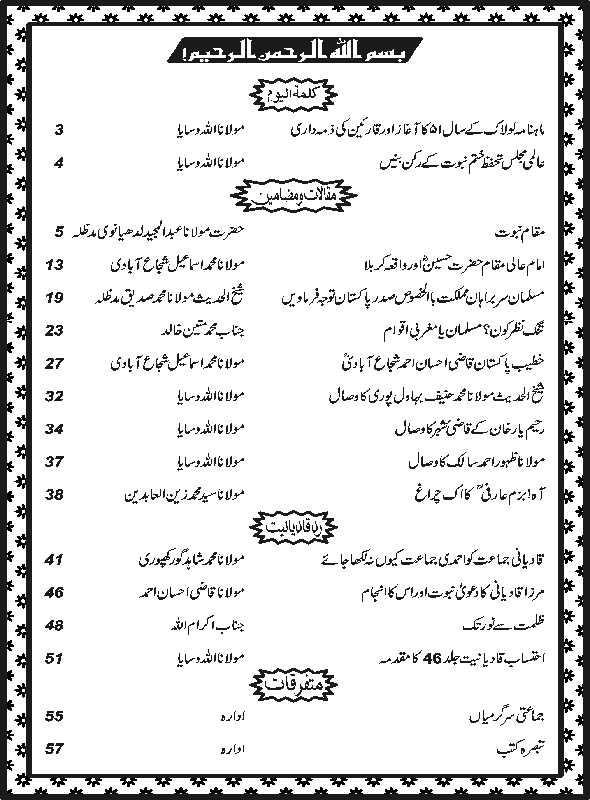 بسم اللہ الرحمن الرحیم!
کلمۃ الیوم
ماہنامہ لولاک کے سال ۵۱ کا آغاز اور قارئین کی ذمہ داری مولانا اللہ وسایا 3
عالمی مجلس تحفظ ختم نبوت کے رکن بنیں مولانا اللہ وسایا 4
مقالات و مضامین
مقام نبوت حضرت مولانا عبدالمجید لدھیانوی مدظلہ 5
امام عالی مقام حضرت حسینؓ اور واقعہ کربلا مولانا محمد اسماعیل شجاع آبادی 13
مسلمان سربراہان مملکت بالخصوص صدر پاکستان توجہ فرماویں شیخ الحدیث مولانا محمد صدیق مدظلہ 19
تنگ نظر کون؟ مسلمان یا مغربی اقوام جناب محمد متین خالد 23
خطیب پاکستان قاضی احسان احمد شجاع آبادیؒ مولانا محمد اسماعیل شجاع آبادی 27
شیخ الحدیث مولانا محمد حنیف بہاول پوری کا وصال مولانا اللہ وسایا 32
رحیم یار خان کے قاضی بشیر کا وصال مولانا اللہ وسایا 34
مولانا ظہور احمد سالک کا وصال مولانا اللہ وسایا 37
آہ! بزم عارفیؒ کا اک چراغ مولانا سید محمد زین العابدین 38
رد قادیانیت
قادیانی جماعت کو احمدی جماعت کیوں نہ لکھا جائے مولانا محمد شاہد گورکھپوری 41
مرزا قادیانی کا دعویٰ نبوت اور اس کا انجام مولانا قاضی احسان احمد 46
ظلمت سے نور تک جناب اکرام اللہ 48
احتساب قادیانیت جلد 46 کا مقدمہ مولانا اللہ وسایا 51
متفرقات
جماعتی سرگرمیاں ادارہ 55
تبصرہ کتب ادارہ 57